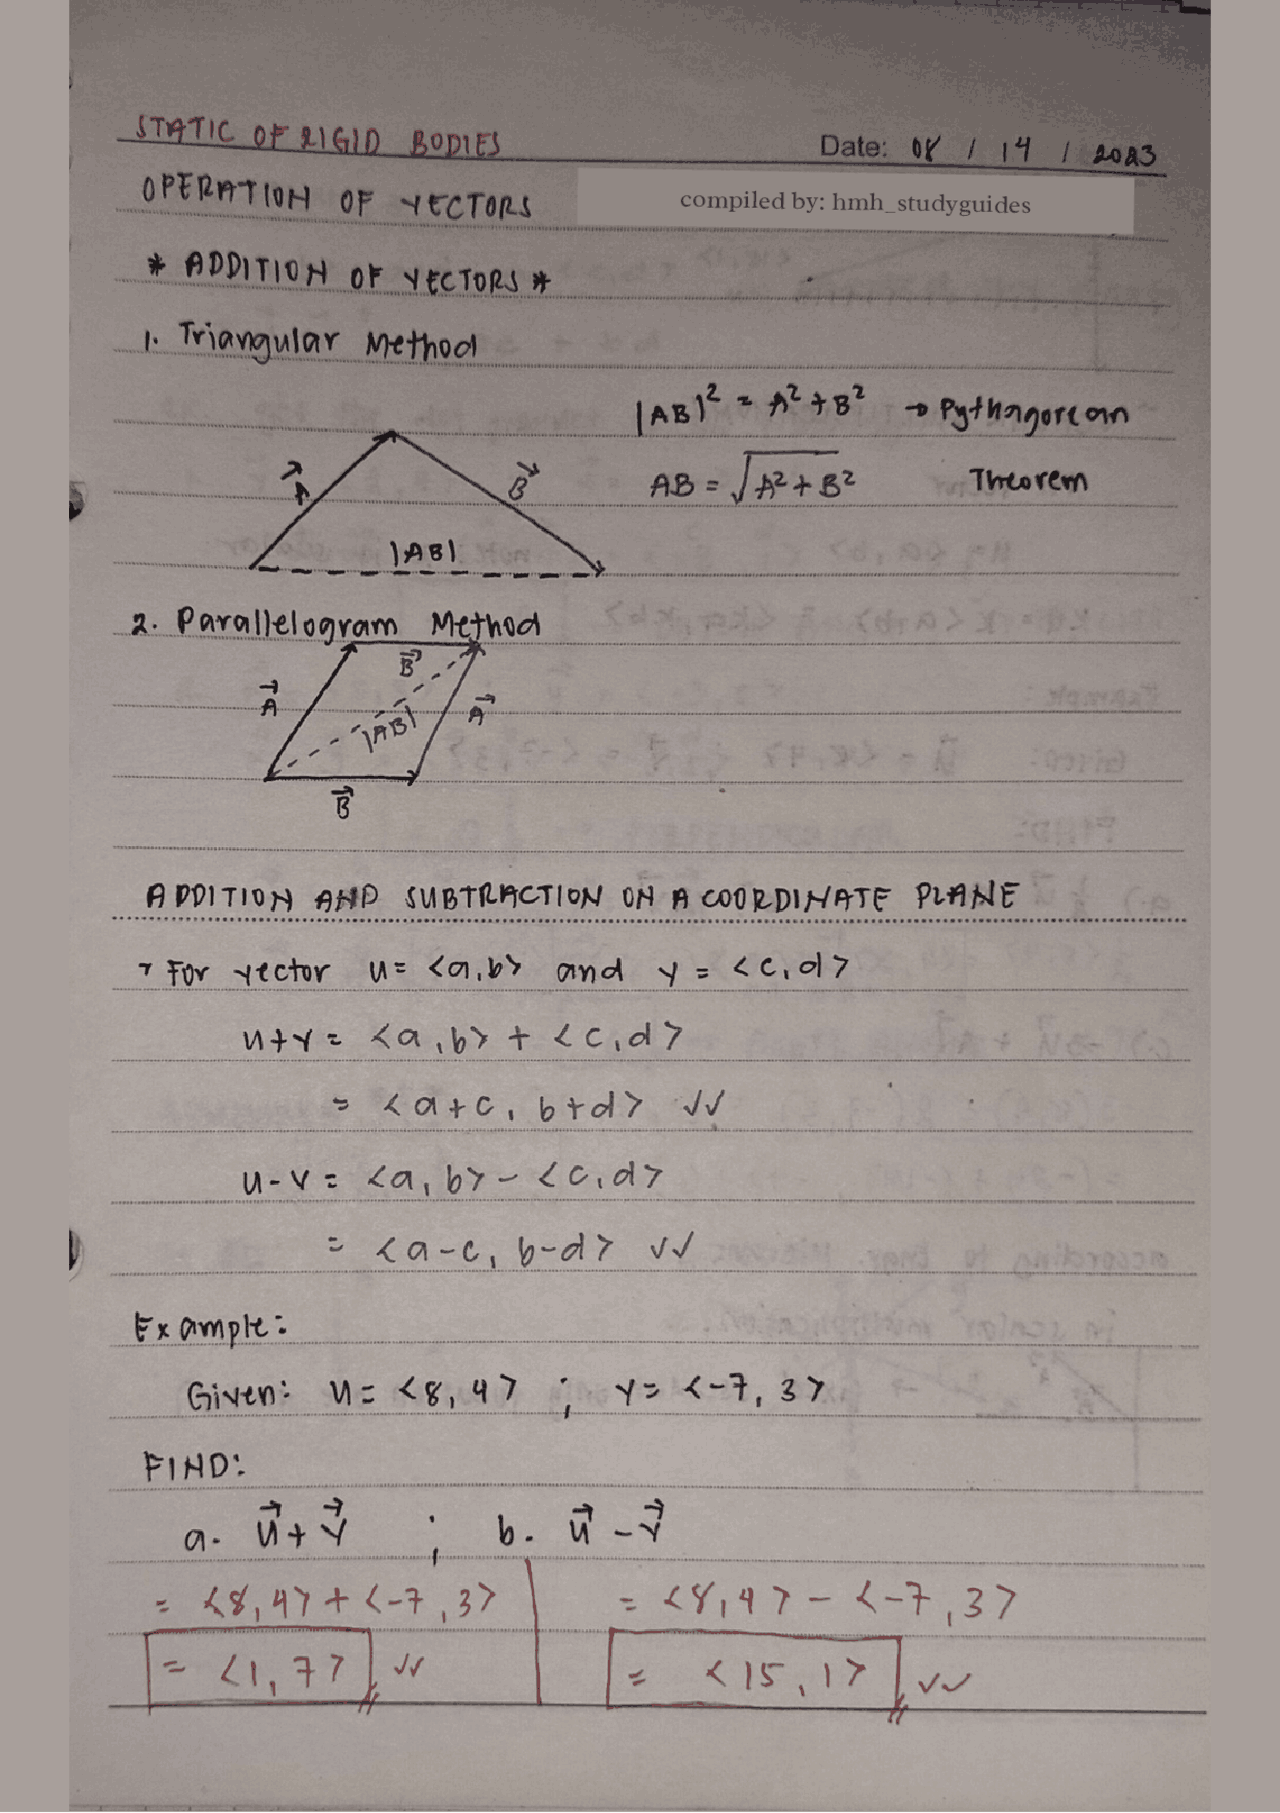 STATIC OF RIGID BODIES
Date: 08 / 14 / 2023
OPERATION OF VECTORS
compiled by: hmh_studyguides
* ADDITION OF VECTORS *
1. Triangular Method
|AB|² = A² + B² → Pythagorean
AB = √A² + B² Theorem
A⃗
B⃗
|AB|
2. Parallelogram Method
B⃗
A⃗
|AB|
A⃗
B⃗
ADDITION AND SUBTRACTION ON A COORDINATE PLANE
For vector u = <a,b> and v = <c,d>
u+v = <a,b> + <c,d>
= <a+c, b+d> ✓✓
u-v = <a,b> - <c,d>
= <a-c, b-d> ✓✓
Example:
Given: u = <8,4> ; v = <-7,3>
FIND:
a. u⃗ + v⃗ ; b. u⃗ - v⃗
= <8,4> + <-7,3>
= <8,4> - <-7,3>
= <1,7> ✓✓
= <15,1> ✓✓